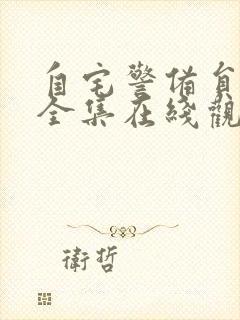 自宅警備員
全集在綫觀
衛哲